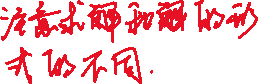 注意求解和解的形
式的不同.